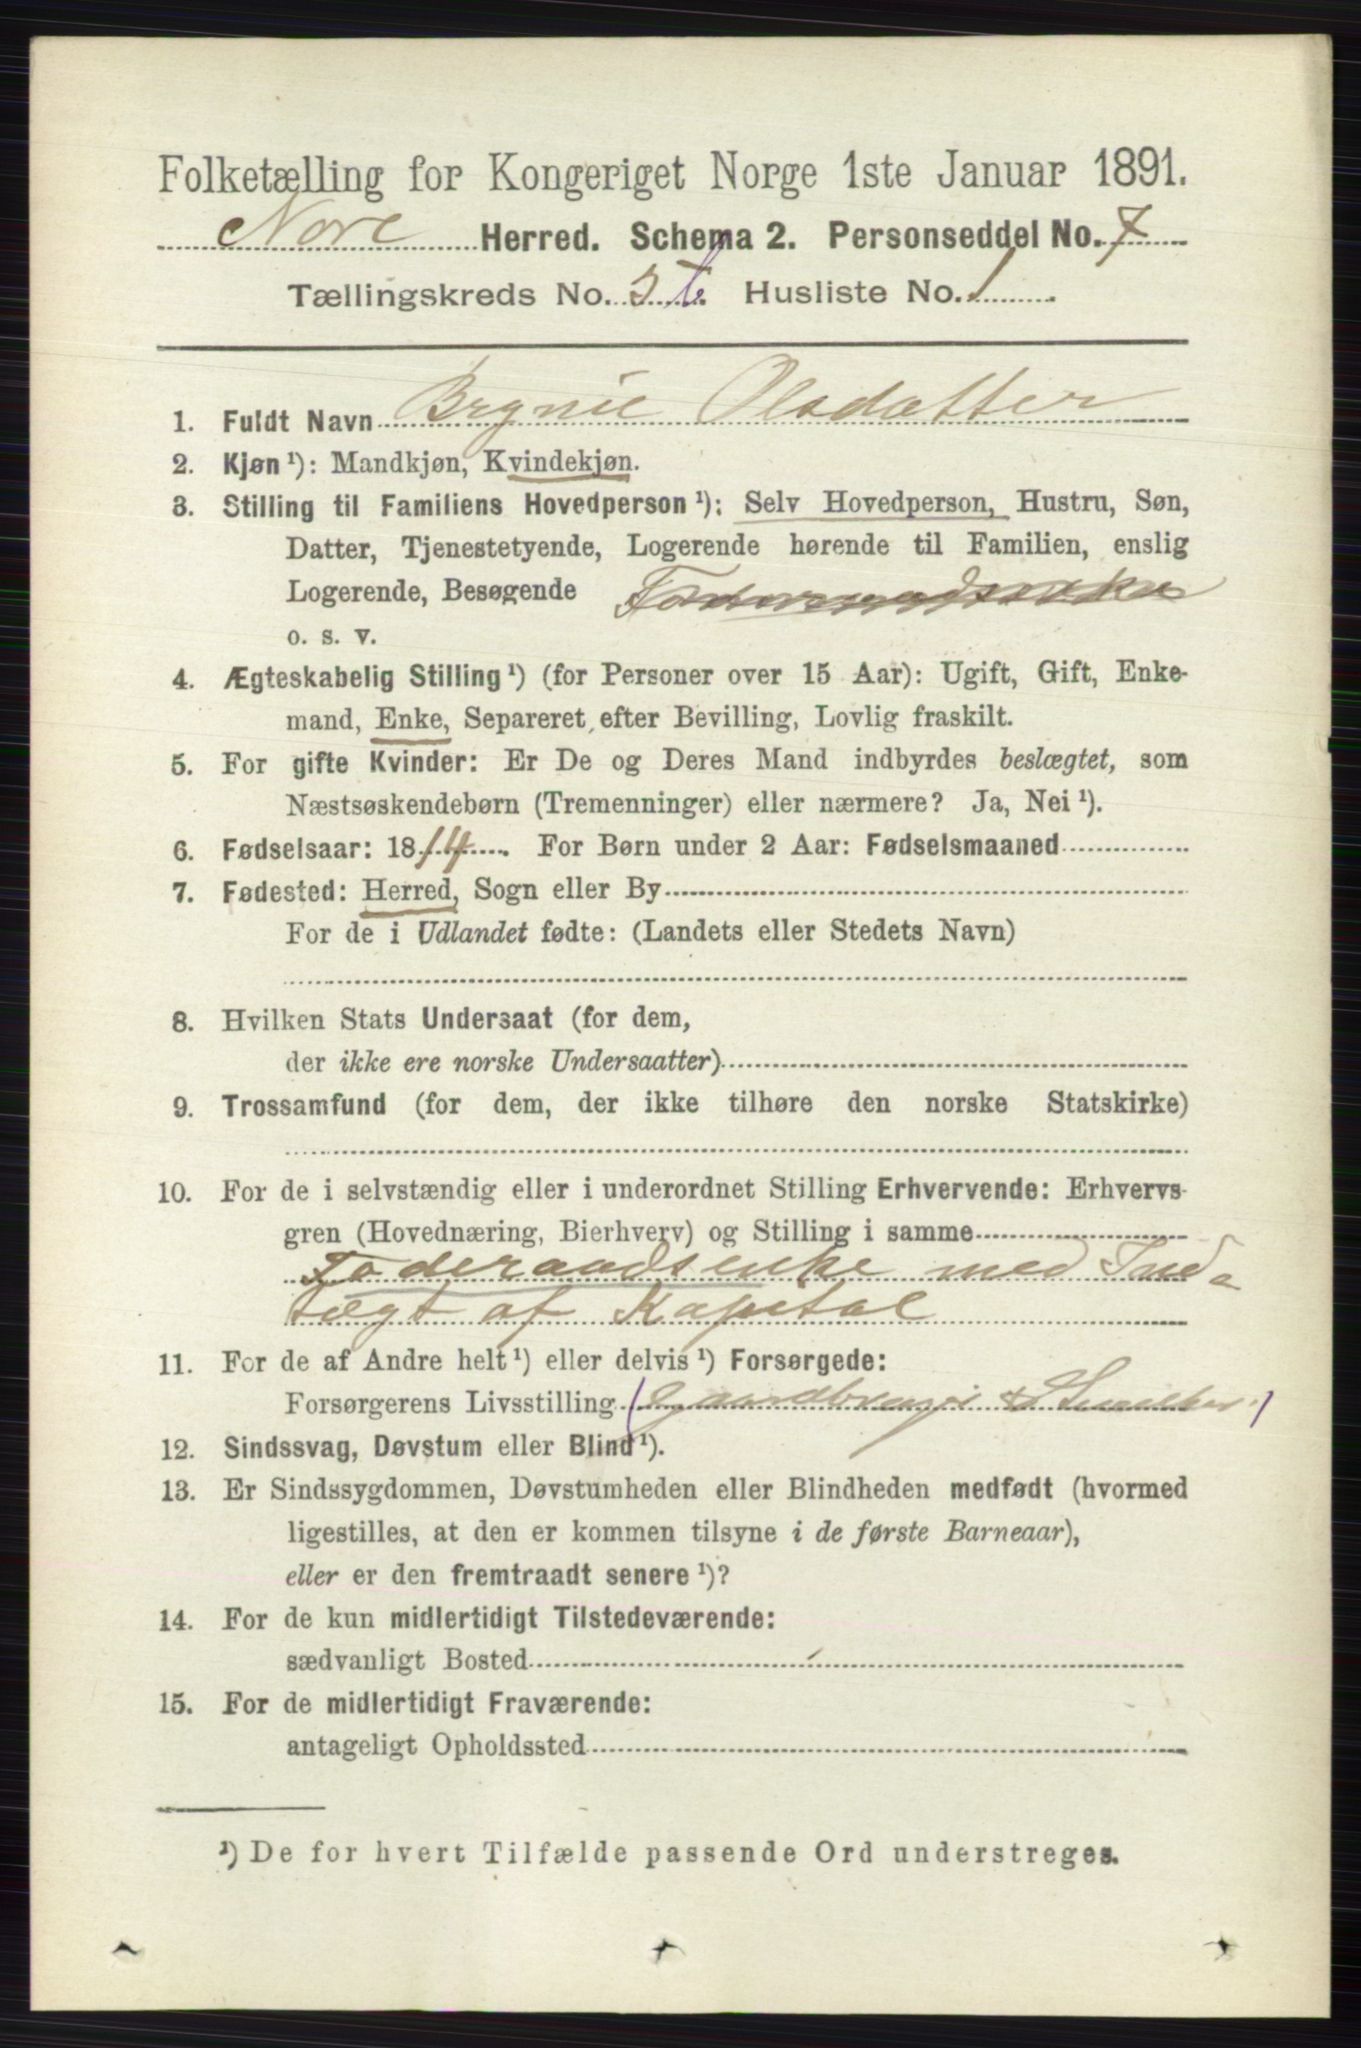 Folketælling for Kongeriget Norge 1ste Januar 1891.
Nore Herred. Schema 2. Personseddel No. 7
Tællingskreds No. 3 b. Husliste No. 1
1. Fuldt Navn Olsdatter
2. Kjøn ¹): Mandkjøn, Kvindekjøn.
3. Stilling til Familiens Hovedperson ¹): Selv Hovedperson, Hustru, Søn,
Datter, Tjenestetyende, Logerende hørende til Familien, enslig
Logerende, Besøgende
o. s. v.
4. Ægteskabelig Stilling ¹) (for Personer over 15 Aar): Ugift, Gift, Enke-
mand, Enke, Separeret efter Bevilling, Lovlig fraskilt.
5. For gifte Kvinder: Er De og Deres Mand indbyrdes beslægtet, som
Næstsøskendebørn (Tremenninger) eller nærmere? Ja, Nei ¹).
6. Fødselsaar: 1814. For Børn under 2 Aar: Fødselsmaaned
7. Fødested: Herred, Sogn eller By
For de i Udlandet fødte: (Landets eller Stedets Navn)
8. Hvilken Stats Undersaat (for dem,
der ikke ere norske Undersaatter)
9. Trossamfund (for dem, der ikke tilhøre den norske Statskirke)
10. For de i selvstændig eller i underordnet Stilling Erhvervende: Erhvervs-
gren (Hovednæring, Bierhverv) og Stilling i samme
Føderaadsenke med Ind-
tægt af Kapital
11. For de af Andre helt ¹) eller delvis ¹) Forsørgede:
Forsørgerens Livsstilling (Gaardbruger & Snedker)
12. Sindssvag, Døvstum eller Blind ¹).
13. Er Sindssygdommen, Døvstumheden eller Blindheden medfødt (hvormed
ligestilles, at den er kommen tilsyne i de første Barneaar),
eller er den fremtraadt senere ¹)?
14. For de kun midlertidigt Tilstedeværende:
sædvanligt Bosted
15. For de midlertidigt Fraværende:
antageligt Opholdssted
¹) De for hvert Tilfælde passende Ord understreges.